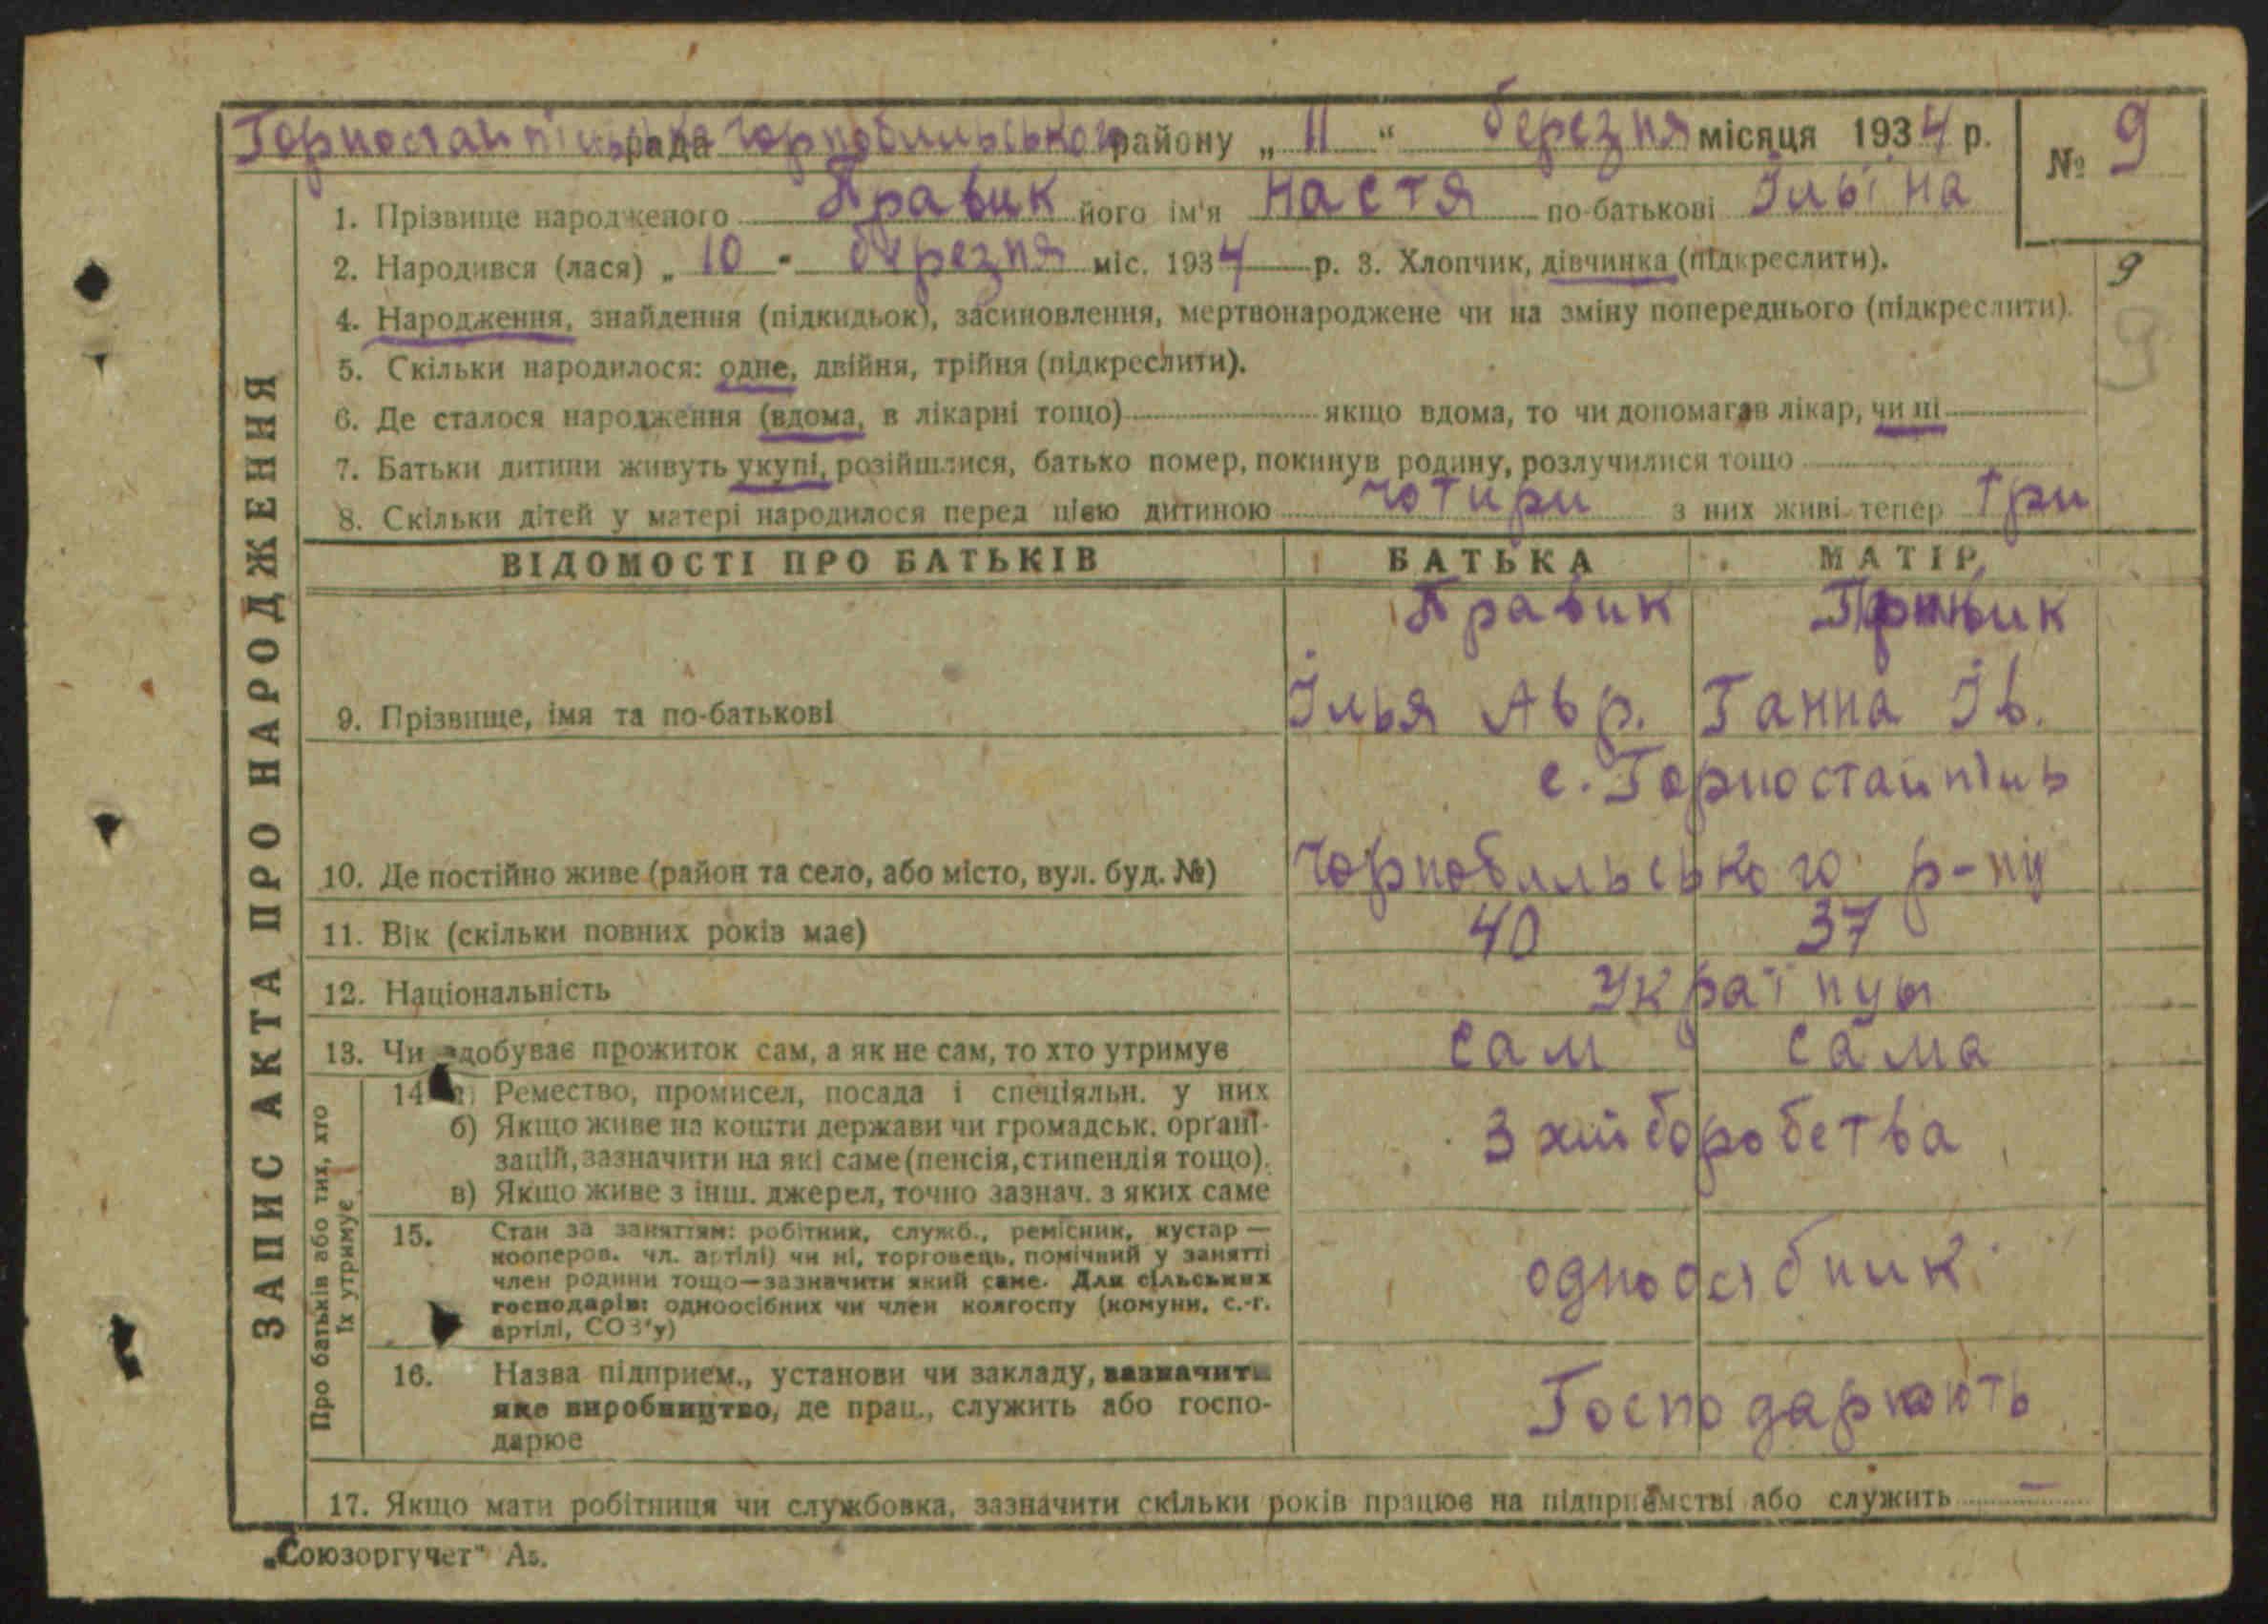 Горностайпільська рада Чорнобильського району „ 11 “ березня місяця 1934 р.
№ 9
1. Прізвище народженого Правик його ім'я Настя по-батькові Ільїна
2. Народився (лася) „ 10 - березня міс. 1934 р. 3. Хлопчик, дівчинка (підкреслити).
9
4. Народження, знайдення (підкидьок), засиновлення, мертвонароджене чи на зміну попереднього (підкреслити).
9
5. Скільки народилося: одне, двійня, трійня (підкреслити).
6. Де сталося народження (вдома, в лікарні тощо) якщо вдома, то чи допомагав лікар, чи ні
7. Батьки дитини живуть укупі, розійшлися, батько помер, покинув родину, розлучилися тощо
8. Скільки дітей у матері народилося перед цією дитиною чотири з них живі тепер три
ЗАПИС АКТА ПРО НАРОДЖЕННЯ
ВІДОМОСТІ ПРО БАТЬКІВ БАТЬКА МАТІР
Правик
9. Прізвище, імя та по-батькові Ілья Авр. Ганна Ів.
с. Горностайпіль
10. Де постійно живе (район та село, або місто, вул. буд. №) Чорнобильського р-ну
11. Вік (скільки повних років має) 40 37
12. Національність Українцы
13. Чи здобуває прожиток сам, а як не сам, то хто утримує сам сама
Про батьків або тих, хто
їх утримує
14. а) Ремество, промисел, посада і спеціяльн. у них
б) Якщо живе на кошти держави чи громадськ. орґані-
зацій, зазначити на які саме (пенсія, стипендія тощо).
в) Якщо живе з інш. джерел, точно зазнач. з яких саме
З хліборобства
15. Стан за заняттям: робітник, служб., ремісник, кустар —
кооперов. чл. артілі) чи ні, торговець, помічний у занятті
член родини тощо—зазначити який саме. Для сільських
господарів: одноосібних чи член колгоспу (комуни, с.-г.
артілі, СОЗ'у)
одноосібник
16. Назва підприєм., установи чи закладу, зазначить
яке виробництво, де прац., служить або госпо-
дарює
Господарюють
17. Якщо мати робітниця чи службовка, зазначити скільки років працює на підприємстві або служить —
„Союзоргучет" А5.